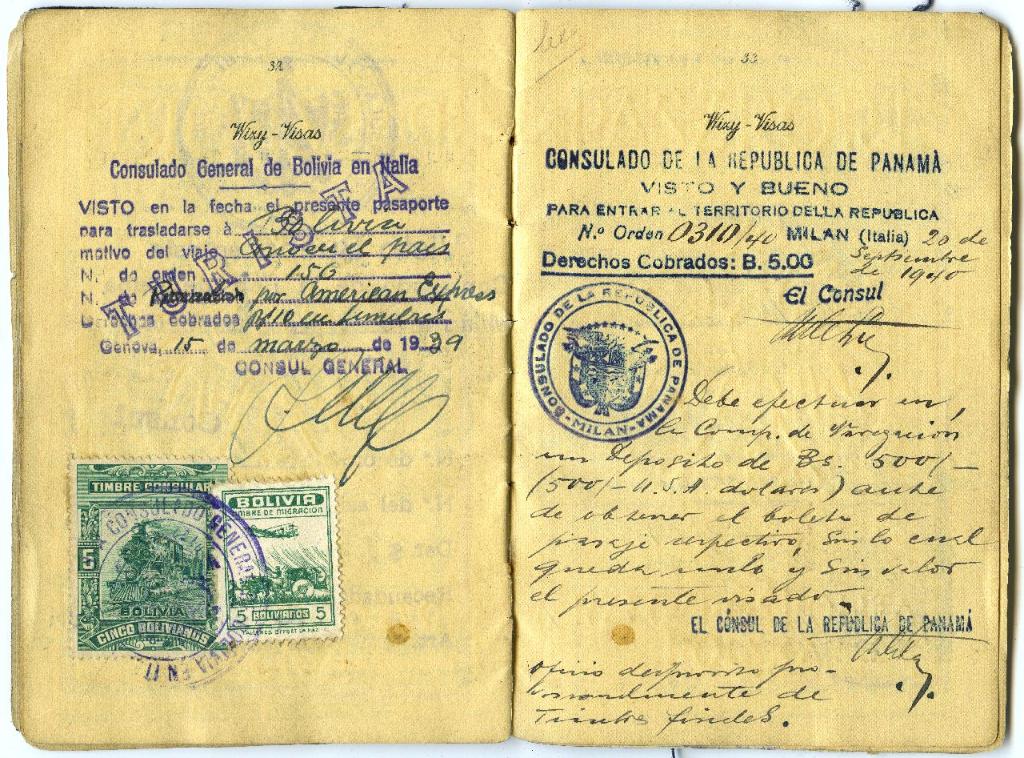 32
Wizy-Visas
Consulado General de Bolivia en Italia
VISTO en la fecha el presente pasaporte
para trasladarse à Bolivia
motivo del viaje conocer el pais
N. de orden 156
N. de por American Express
Derechos cobrados
Genova, 15 de marzo de 1939
CONSUL GENERAL
TIMBRE CONSULAR
5
BOLIVIA
CINCO BOLIVIANOS
BOLIVIA
TIMBRE DE MIGRACION
5 BOLIVIANOS 5
TALLERES OFFSET LA PAZ
CONSULADO GENERAL
33
Wizy-Visas
CONSULADO DE LA REPUBLICA DE PANAMÀ
VISTO Y BUENO
PARA ENTRAR AL TERRITORIO DELLA REPUBLICA
N.º Orden 0310/40 MILAN (Italia) 20 de
Septiembre
de 1940
Derechos Cobrados: B. 5.00
El Consul
CONSULADO DE LA REPUBLICA DE PANAMA
-MILAN-
Debe efectuar en
la Comp. de Navegacion
un Deposito de Bs. 500/-
(500/- U.S.A. dolares) ante
de obtener el boleto de
pasaje respectivo, sin lo cual
queda nulo y sin valor
el presente visado.
EL CÓNSUL DE LA REPÚBLICA DE PANAMÁ
de
Timbres